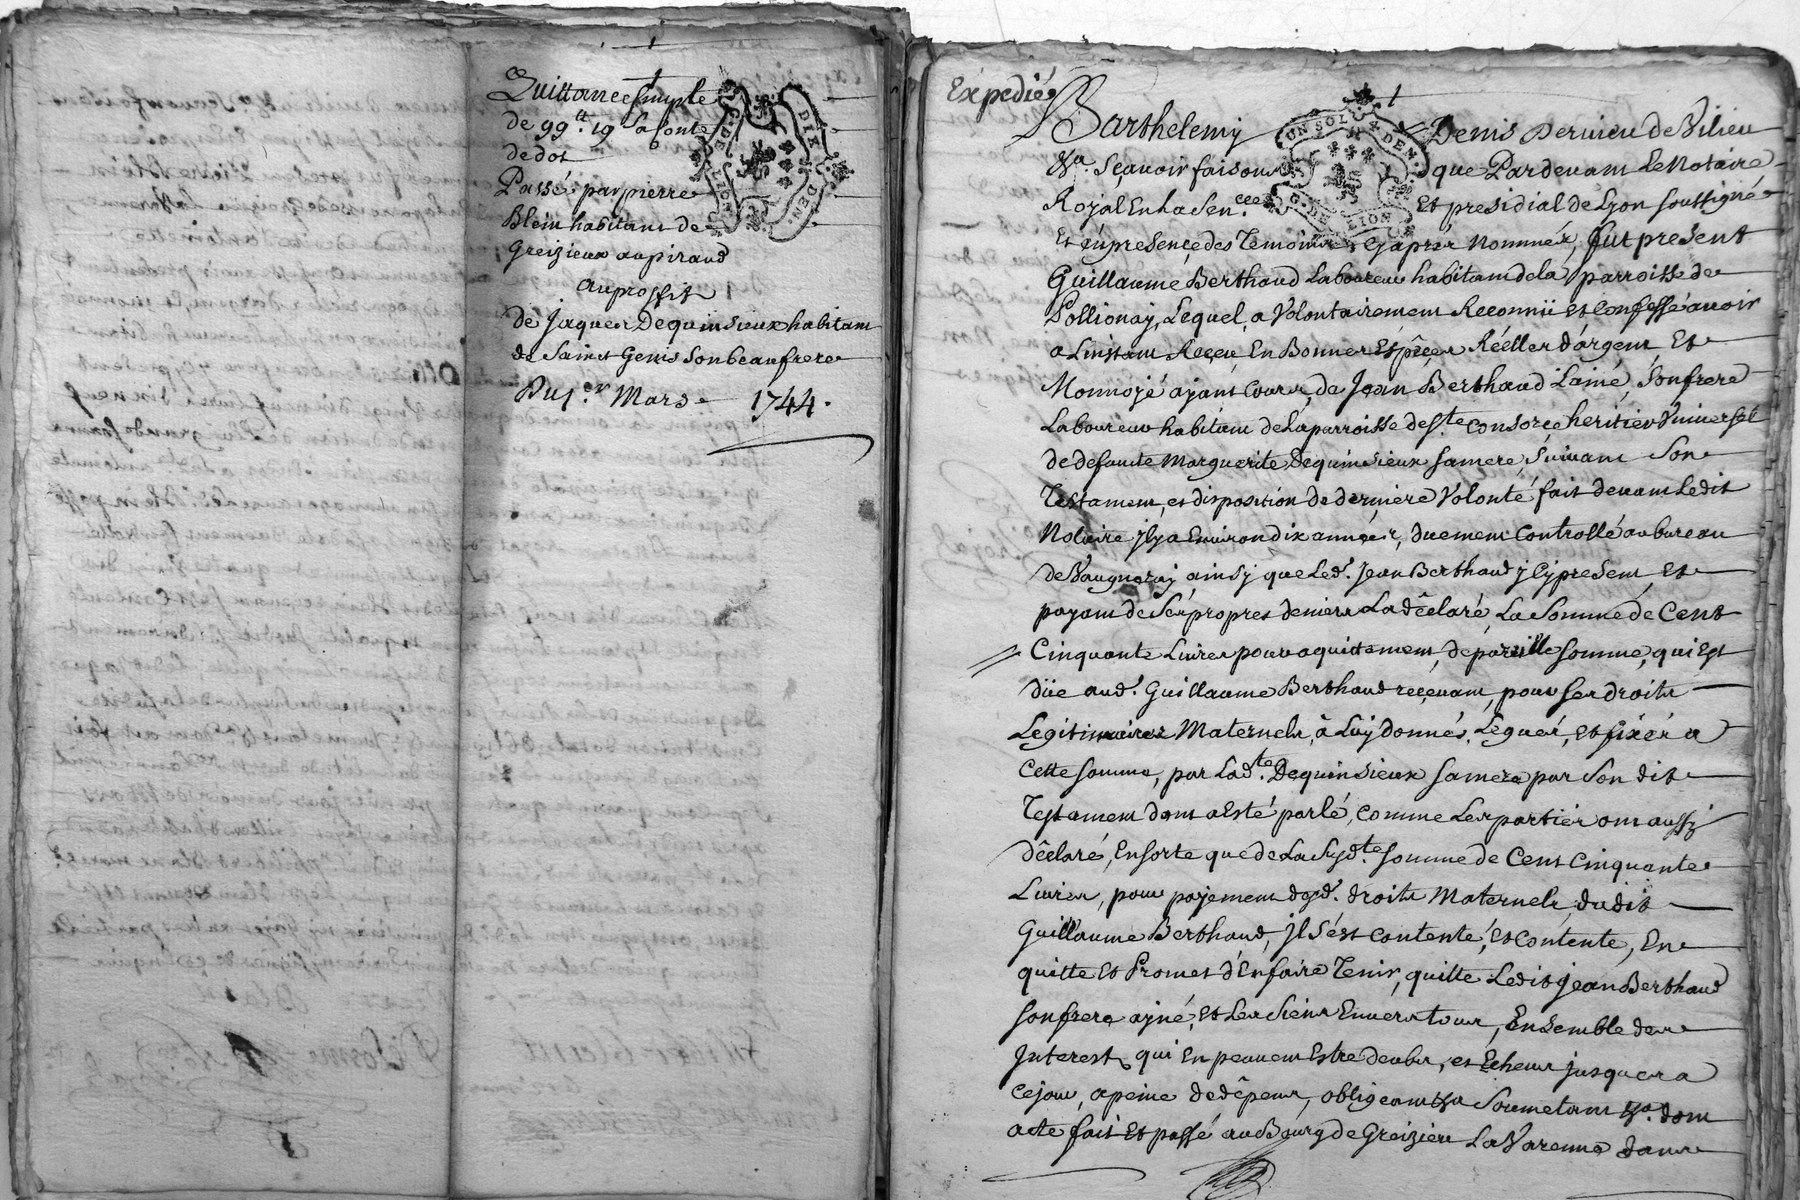 Quittance simple
de 99.tt 19 s a conte
de dot
Passé par pierre
Blein habitant de
Greizieux aupiraud
au proffit
de Jaques Dequinsieux habitant
de Saint Genis son beaufrere
Du 1.er Mars 1744.
G. DE LION
DIX DEN.
Expedié
Barthelemy Denis Dervieu de Vilieu
&a. Sçavoir faisons que Pardevant Le Notaire
Royal En La Sen.cee Et presidial de Lyon soussigné
Et en presence des Temoins Cy aprés Nommés, fut present
Guillaume Berthaud Laboureur habitant de la parroisse de
Pollionay, Lequel, a Volontairement Reconnü et Confessé avoir
a L'instant Reçeu En Bonnes Espêces Réelles d'argent Et
Monnoyé ayant Cours, de Jean Berthaud L'ainé, Son frere
Laboureur habitant de la parroisse de S.te Consorce heritier Universel
de defunte Marguerite Dequinsieux sa mere, Suivant Son
Testament, et disposition de derniere Volonté fait devant Ledit
Notaire il y a Environ dix années, duement Controllé au bureau
de Vaugneray ainsy que Led. Jean Berthaud y Cy present Et
payant de Ses propres deniers La dêclaré, La Somme de Cent
Cinquante Livres pour aquittement, de pareille somme, qui Est
düe aud. Guillaume Berthaud reçevant, pour ses droits
Legitimaires Maternels, à Luy donnés, Legués, et fixés a
Cette somme, par Lad.te Dequinsieux sa mere par Son dit
Testament dont a Esté parlé, comme Les partiës ont aussy
dêclaré, Ensorte que de La Susd.te somme de Cent Cinquante
Livres, pour payement desd. droits Maternels, dudit
Guillaume Berthaud, il S'est contenté, et contente, En
quitte et Promet d'En faire Tenir, quitte Ledit Jean Berthaud
son frere ayné, et Les Siens Envers tous, Ensemble des
Interest, qui En peuvent Estre deubs, et Echeus jusques a
Ce jour, a peine de dêpens, obligeant &a Soumetant &a. dont
acte fait Et passé au Bourg de Greizieu La Varenne dans
UN SOL 4 DEN.
G. DE LION